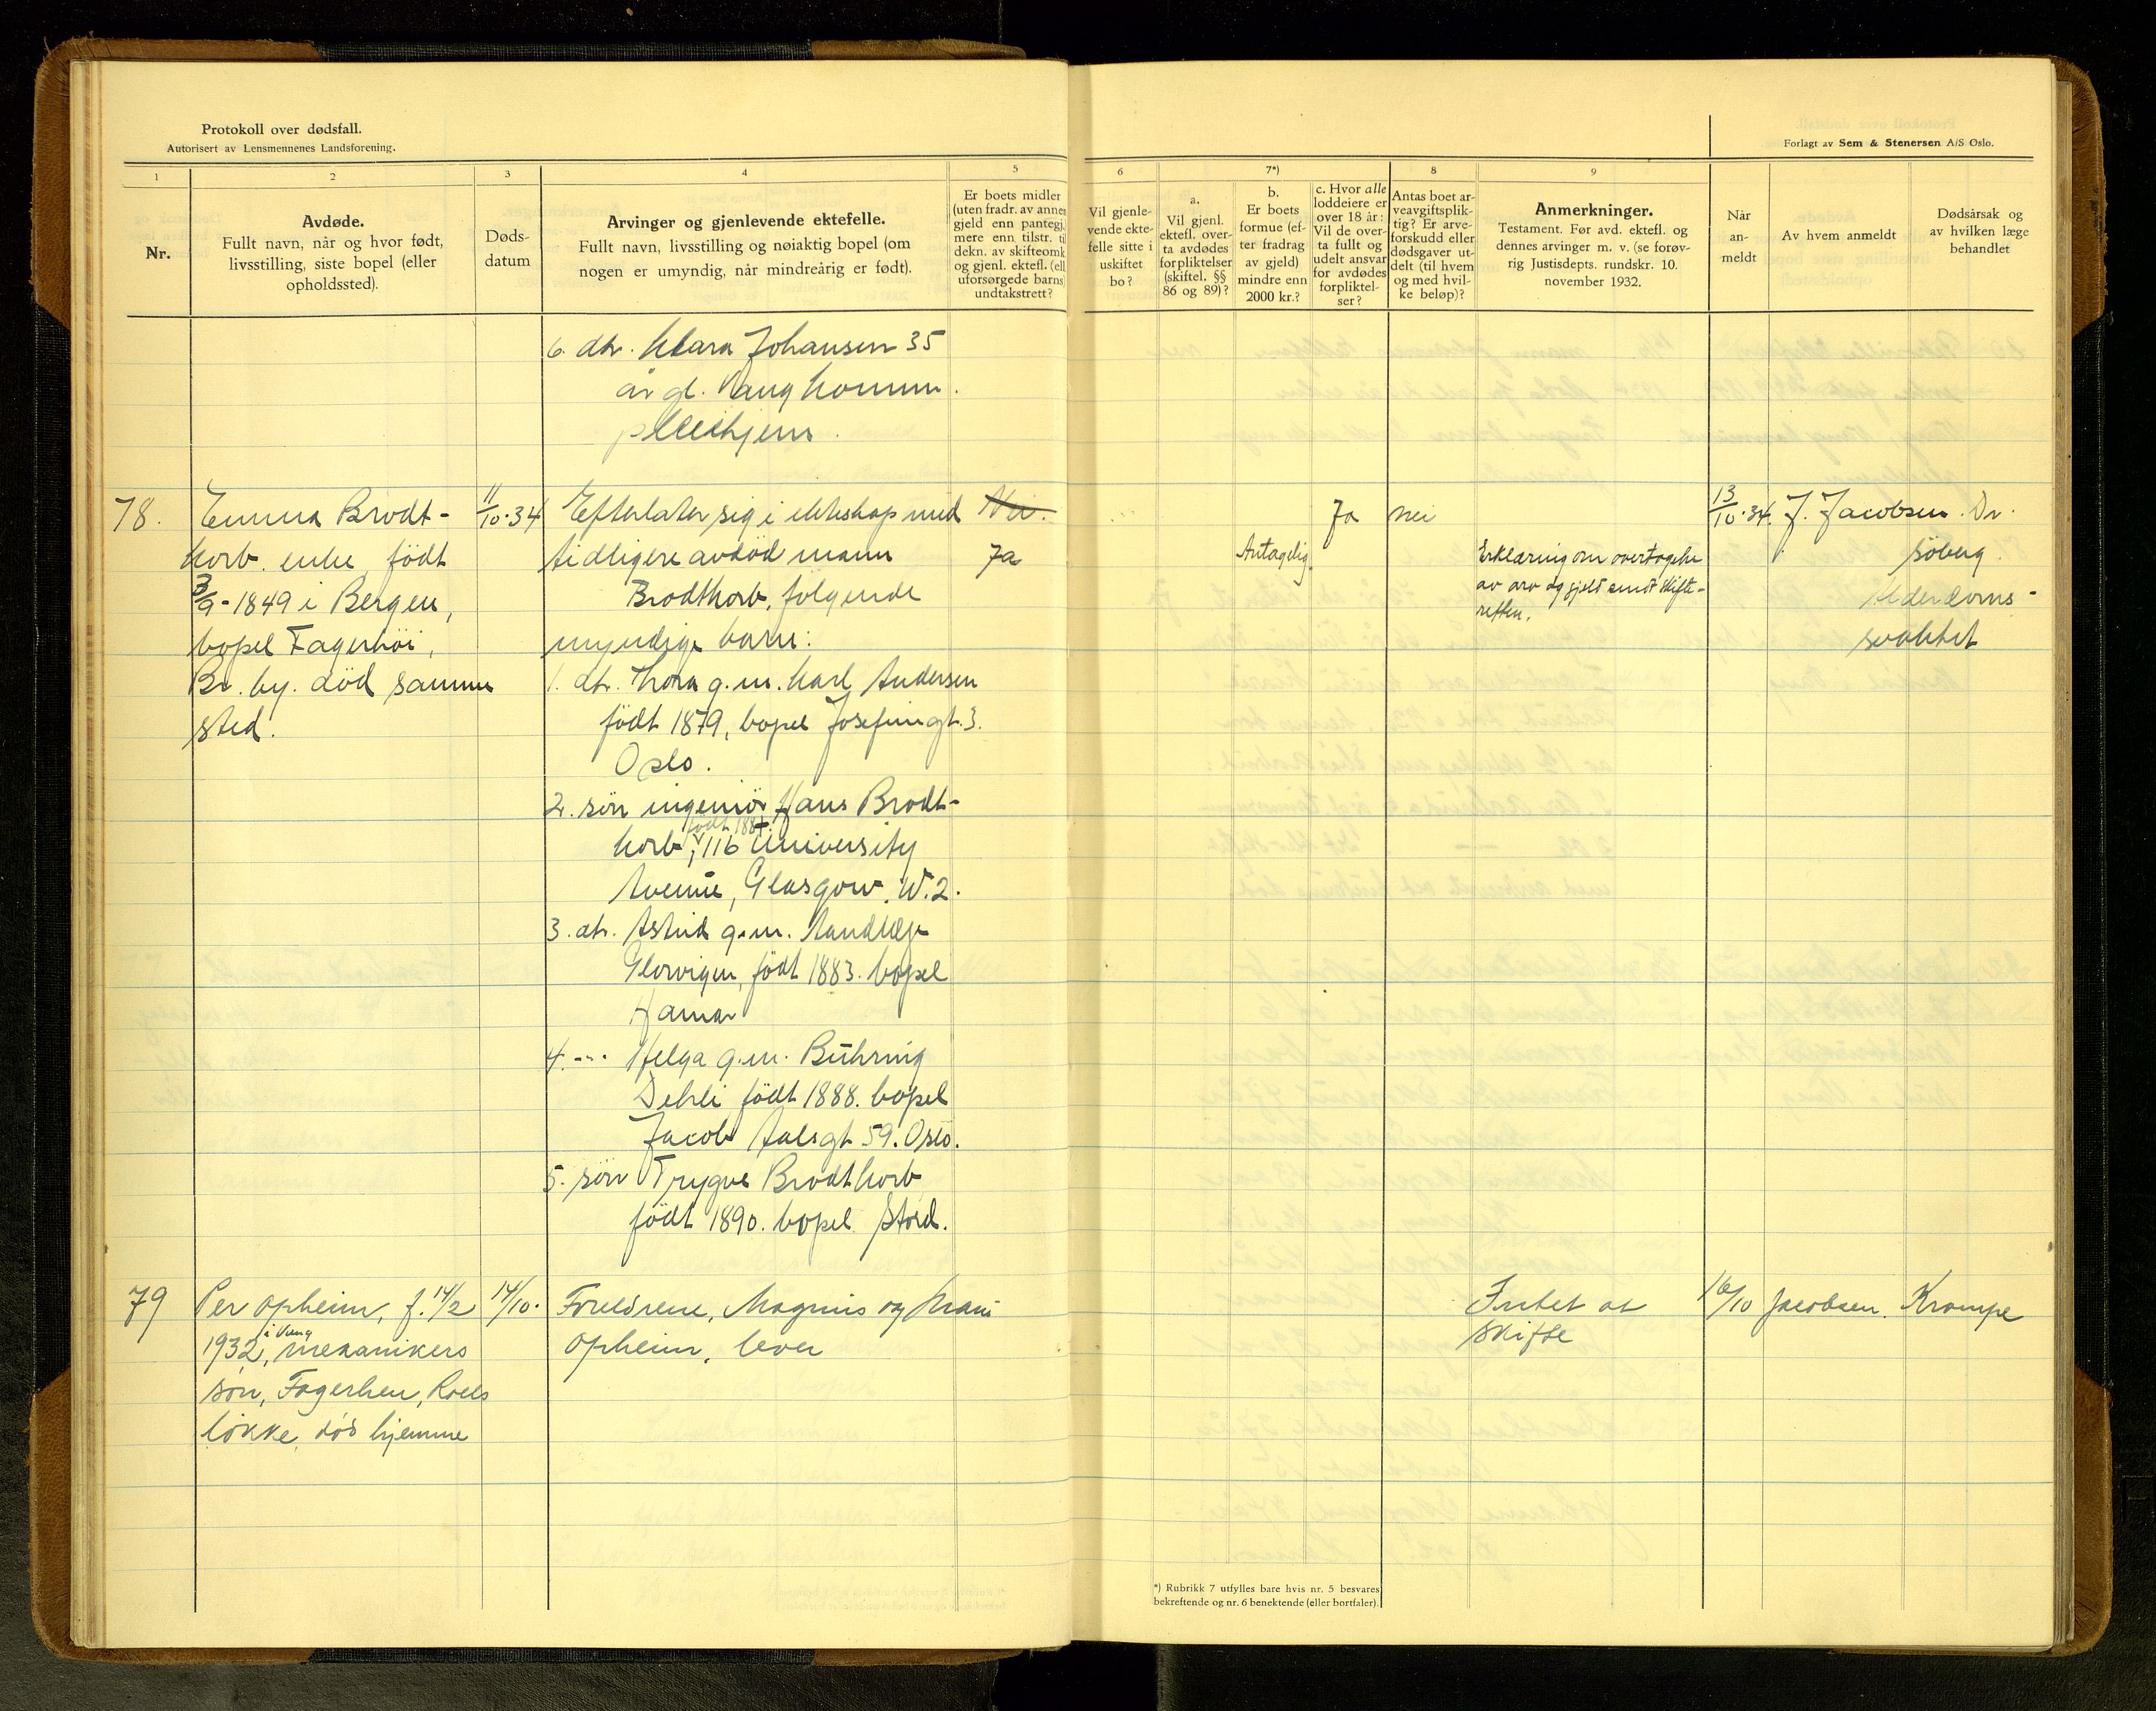 Protokoll over dødsfall.
Autorisert av Lensmennenes Landsforening.
Forlagt av Sem & Stenersen A/S Oslo.
1
2
3
4
5
6
7*)
8
9
Nr.
Avdøde.
Fullt navn, når og hvor født,
livsstilling, siste bopel (eller
opholdssted).
Døds-
datum
Arvinger og gjenlevende ektefelle.
Fullt navn, livsstilling og nøiaktig bopel (om
nogen er umyndig, når mindreårig er født).
Er boets midler
(uten fradr. av annen
gjeld enn pantegj.
mere enn tilstr. til
dekn. av skifteomk.
og gjenl. ektefl. (ell.
uforsørgede barns)
undtakstrett?
Vil gjenle-
vende ekte-
felle sitte i
uskiftet
bo?
a.
Vil gjenl.
ektefl. over-
ta avdødes
forpliktelser
(skiftel. §§
86 og 89)?
b.
Er boets
formue (ef-
ter fradrag
av gjeld)
mindre enn
2000 kr.?
c. Hvor alle
loddeiere er
over 18 år:
Vil de over-
ta fullt og
udelt ansvar
for avdødes
forpliktel-
ser?
Antas boet ar-
veavgiftsplik-
tig? Er arve-
forskudd eller
dødsgaver ut-
delt (til hvem
og med hvil-
ke beløp)?
Anmerkninger.
Testament. Før avd. ektefl. og
dennes arvinger m. v. (se forøv-
rig Justisdepts. rundskr. 10.
november 1932.
Når
an-
meldt
Av hvem anmeldt
Dødsårsak og
av hvilken læge
behandlet
6. dtr. Klara Johansen 35
år gl. Vang komm.
pleiehjem.
78.
Emma Brodt-
korb. enke, födt
3/9-1849 i Bergen,
bopel Fagerhöi,
Br. by. död samme
sted.
11/10-34
Efterlater sig i ekteskap med
tidligere avdöd mann
Brodtkorb, följende
myndige barn:
1. dtr. Thora g.m. Karl Andersen
födt 1879, bopel Josefinegt. 3.
Oslo.
2. sön ingeniör Hans Brodt-
födt 1881.
korb, 116 University
Avenue, Glasgow. W.2.
3. dtr. Astrid g.m. tandlæge
Glorvigen, födt 1883. bopel
Hamar
4. -"- Helga g.m. Bühring
Dehli födt 1888. bopel
Jacob Aalsgt 59. Oslo.
5. sön Trygve Brodtkorb
födt 1890. bopel Stord.
Nei.
Ja
Antagelig.
Ja
nei
Erklæring om overtagelse
av arv og gjeld sendt skifte-
retten.
13/10-34.
J. Jacobsen.
Dr.
Söberg.
Alderdoms-
svakhet
79
Per Opheim, f. 14/2
i Vang
1932, mekanikers
søn, Fagerheu, Roels
løkke, død hjemme
14/10.
Foreldrene, Magnus og
Opheim, lever
Intet at
skifte
16/10
Jacobsen.
Krampe
*) Rubrikk 7 utfylles bare hvis nr. 5 besvares
bekreftende og nr. 6 benektende (eller bortfaler).